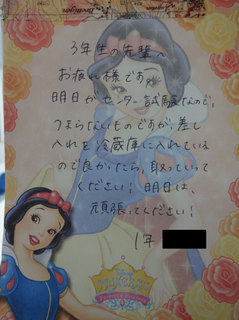 3年生の先輩へ
お疲れ様です
明日がセンター試験なので、
つまらないものですが、差し
入れを冷蔵庫に入れている
ので良かったら、取っていって
ください! 明日は、
頑張ってください!
1年
Disney
Princess